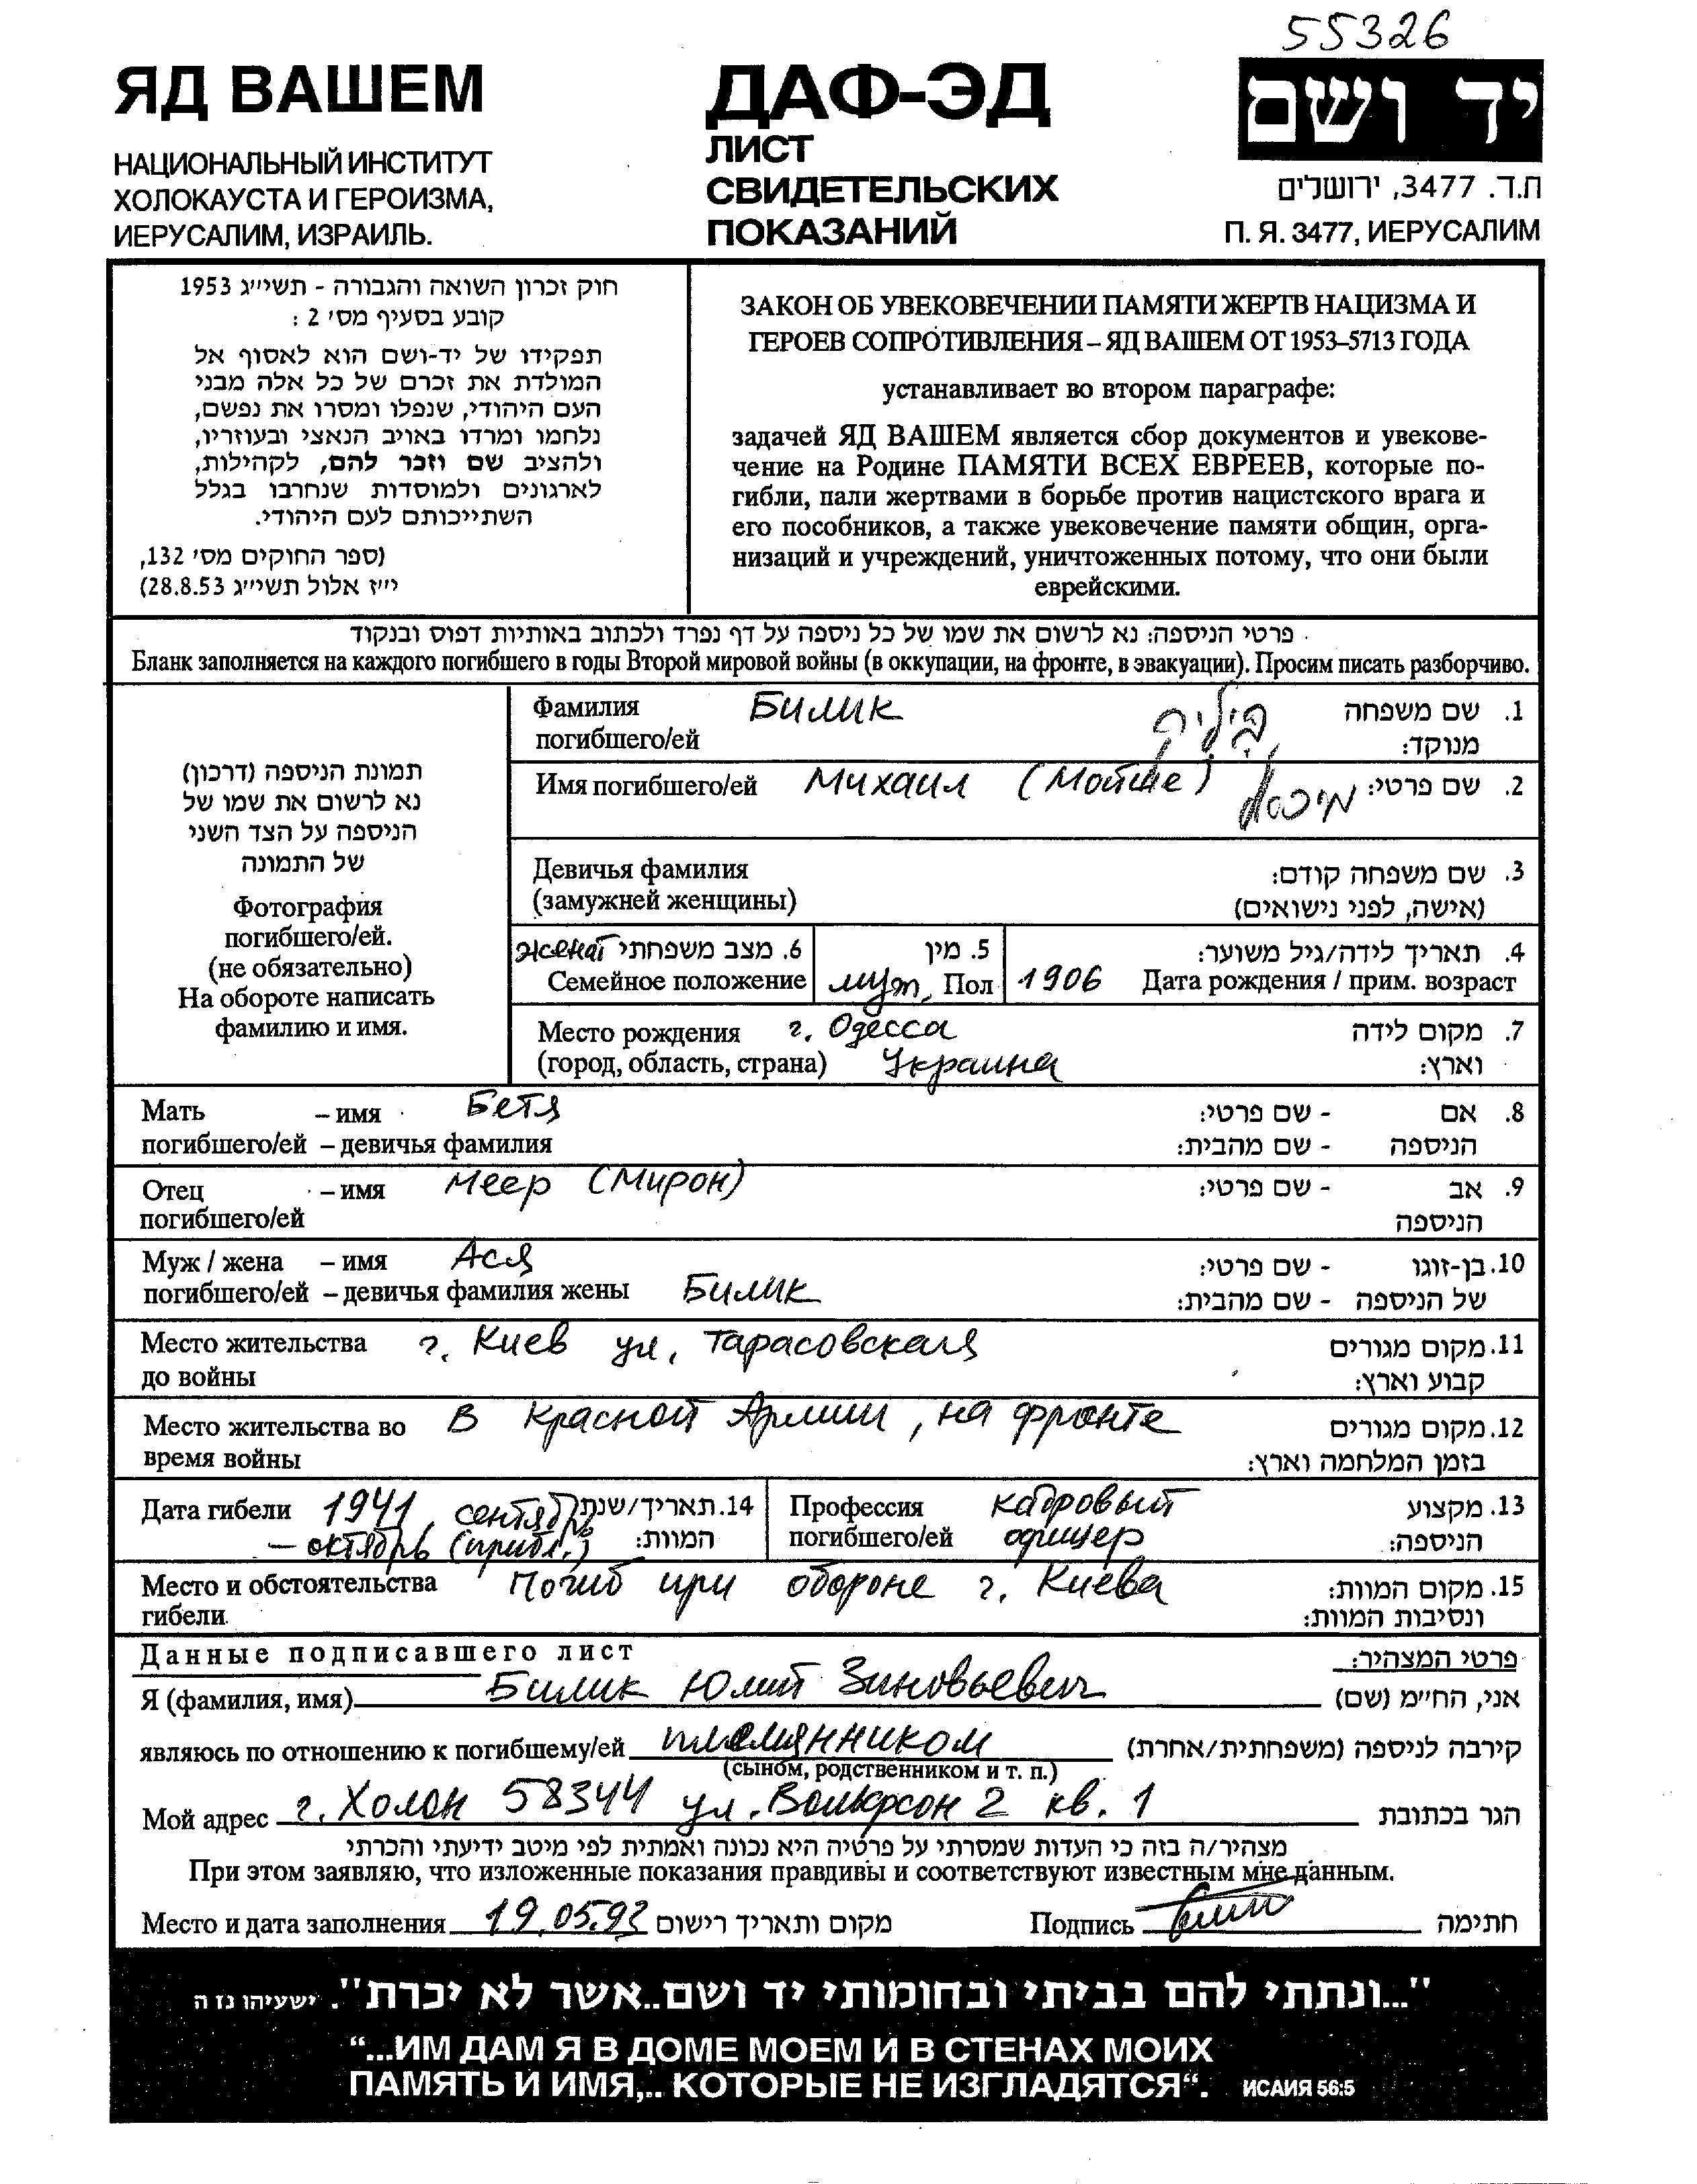 55326
ЯД ВАШЕМ
НАЦИОНАЛЬНЫЙ ИНСТИТУТ
ХОЛОКАУСТА И ГЕРОИЗМА,
ИЕРУСАЛИМ, ИЗРАИЛЬ.
ДАФ-ЭД
ЛИСТ
СВИДЕТЕЛЬСКИХ
ПОКАЗАНИЙ
יד ושם
ת.ד. 3477, ירושלים
П. Я. 3477, ИЕРУСАЛИМ
חוק זכרון השואה והגבורה - תשי״ג 1953
קובע בסעיף מס׳ 2 :
תפקידו של יד-ושם הוא לאסוף אל
המולדת את זכרם של כל אלה מבני
העם היהודי, שנפלו ומסרו את נפשם,
נלחמו ומרדו באויב הנאצי ובעוזריו,
ולהציב שם וזכר להם, לקהילות,
לארגונים ולמוסדות שנחרבו בגלל
השתייכותם לעם היהודי.
(ספר החוקים מס׳ 132,
י״ז אלול תשי״ג 28.8.53)
ЗАКОН ОБ УВЕКОВЕЧЕНИИ ПАМЯТИ ЖЕРТВ НАЦИЗМА И
ГЕРОЕВ СОПРОТИВЛЕНИЯ – ЯД ВАШЕМ ОТ 1953–5713 ГОДА
устанавливает во втором параграфе:
задачей ЯД ВАШЕМ является сбор документов и увекове-
чение на Родине ПАМЯТИ ВСЕХ ЕВРЕЕВ, которые по-
гибли, пали жертвами в борьбе против нацистского врага и
его пособников, а также увековечение памяти общин, орга-
низаций и учреждений, уничтоженных потому, что они были
еврейскими.
פרטי הניספה: נא לרשום את שמו של כל ניספה על דף נפרד ולכתוב באותיות דפוס ובנקוד
Бланк заполняется на каждого погибшего в годы Второй мировой войны (в оккупации, на фронте, в эвакуации). Просим писать разборчиво.
תמונת הניספה (דרכון)
נא לרשום את שמו של
הניספה על הצד השני
של התמונה
Фотография
погибшего/ей.
(не обязательно)
На обороте написать
фамилию и имя.
Фамилия Билик בִּילִיק 1. שם משפחה
погибшего/ей מנוקד:
Имя погибшего/ей Михаил (Мойше) מיכאל 2. שם פרטי:
Девичья фамилия 3. שם משפחה קודם:
(замужней женщины) (אישה, לפני נישואים)
женат 6. מצב משפחתי 5. מין 4. תאריך לידה/גיל משוער:
Семейное положение муж. Пол 1906 Дата рождения / прим. возраст
Место рождения г. Одесса 7. מקום לידה
(город, область, страна) Украина וארץ:
Мать – имя Бетя 8. אם - שם פרטי:
погибшего/ей – девичья фамилия הניספה - שם מהבית:
Отец – имя Меер (Мирон) 9. אב - שם פרטי:
погибшего/ей הניספה
Муж / жена – имя Ася 10. בן-זוגו - שם פרטי:
погибшего/ей – девичья фамилия жены Билик של הניספה - שם מהבית:
Место жительства г. Киев ул. Тарасовская 11. מקום מגורים
до войны קבוע וארץ:
Место жительства во В Красной Армии, на фронте 12. מקום מגורים
время войны בזמן המלחמה וארץ:
Дата гибели 1941, сентябрь 14. תאריך/שנת Профессия кадровый 13. מקצוע
– октябрь (прибл.) המוות: погибшего/ей офицер הניספה:
Место и обстоятельства Погиб при обороне г. Киева 15. מקום המוות:
гибели ונסיבות המוות:
Данные подписавшего лист פרטי המצהיר:
Я (фамилия, имя) Билик Юлий Зиновьевич אני, הח״מ (שם)
являюсь по отношению к погибшему/ей племянником קירבה לניספה (משפחתית/אחרת)
(сыном, родственником и т. п.)
Мой адрес г. Холон 58344 ул. Вольфсон 2 кв. 1 הגר בכתובת
מצהיר/ה בזה כי העדות שמסרתי על פרטיה היא נכונה ואמתית לפי מיטב ידיעתי והכרתי
При этом заявляю, что изложенные показания правдивы и соответствуют известным мне данным.
Место и дата заполнения 19.05.93 מקום ותאריך רישום Подпись חתימה
"...ונתתי להם בביתי ובחומותי יד ושם..אשר לא יכרת". ישעיהו נז ה
“...ИМ ДАМ Я В ДОМЕ МОЕМ И В СТЕНАХ МОИХ
ПАМЯТЬ И ИМЯ,.. КОТОРЫЕ НЕ ИЗГЛАДЯТСЯ“. ИСАИЯ 56:5